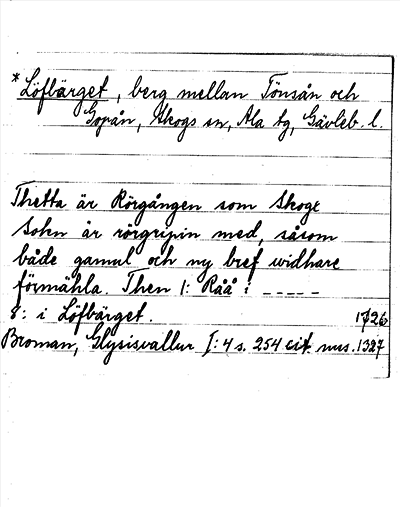 * Löfbärget, berg mellan Tönsån och
Gopån, Skogs sn, Ala tg, Gävleb. l.
Thetta är Rörgången som Skogz
Sokn är rörgripin med, såsom
både gamul och ny bref widhare
förmähla. Then 1: Råå : _ _ _ _ _
8: i Löfbärget. 1726
Broman, Glysisvallur I: 4 s. 254 cit. mus. 1327